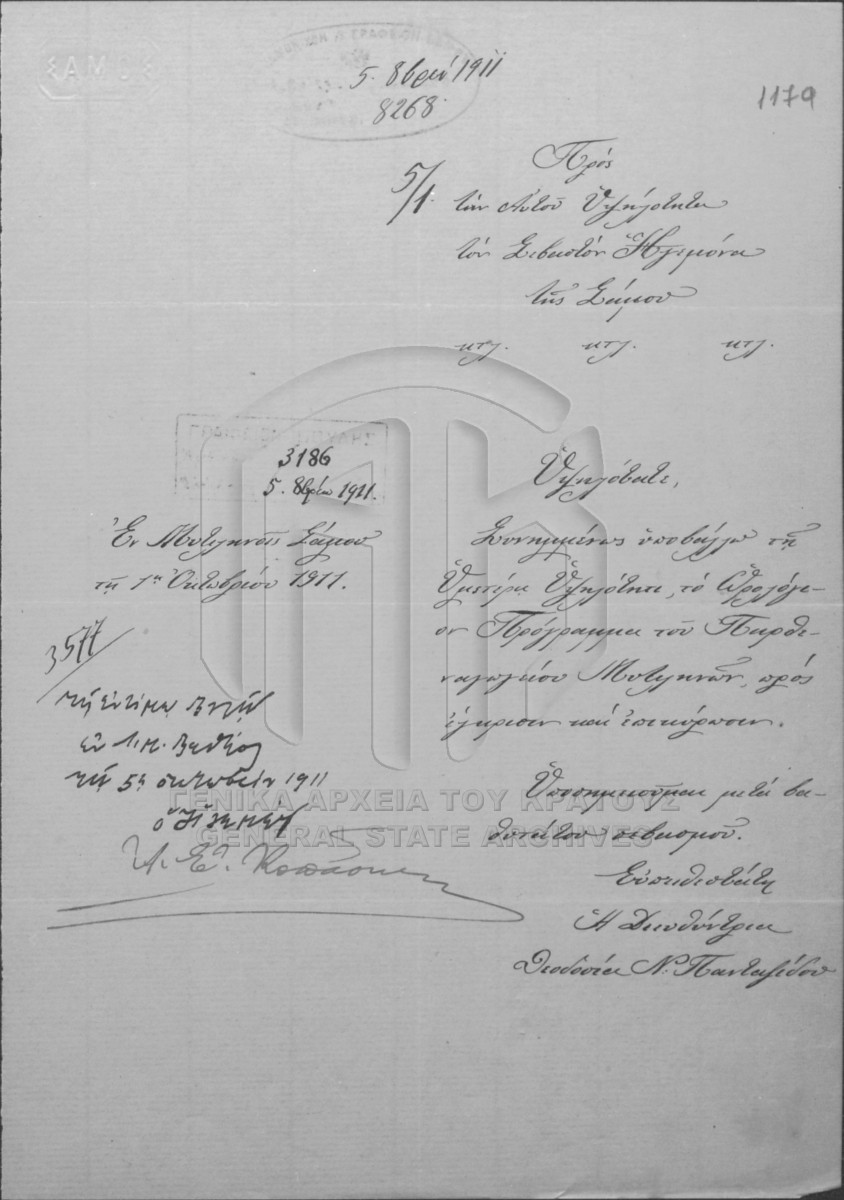 ΣΑΜΟΣ
5. 8βρίου 1911
8268
1179
5/1.
Πρὸς
τὴν Αὐτοῦ Ὑψηλότητα
τὸν Σεβαστὸν Ἡγεμόνα
τῆς Σάμου
κτλ. κτλ. κτλ.
3186
5. 8βρίου 1911.
Ἐν Μυτιληνοῖς Σάμου
τῇ 1ῃ Ὀκτωβρίου 1911.
Ὑψηλότατε,
Συνημμένως ὑποβάλλω τῇ
Ὑμετέρᾳ Ὑψηλότητι, τὸ Ὡρολόγι-
ον Πρόγραμμα τοῦ Παρθε-
ναγωγείου Μυτιληνῶν, πρὸς
ἔγκρισιν καὶ ἐπικύρωσιν.
Ὑποσημειοῦμαι μετὰ βα-
θυτάτου σεβασμοῦ.
Εὐπειθεστάτη
Ἡ Διευθύντρια
Θεοδοσία Ν. Πανταζίδου
3577
τῇ ἐντίμῳ Βουλῇ
ἐν Λιμ. Βαθέος
τῇ 5ῃ ὀκτωβρίου 1911
ὁ Ἡγεμὼν
Ἀ. Κοπάσης
ΓΕΝΙΚΑ ΑΡΧΕΙΑ ΤΟΥ ΚΡΑΤΟΥΣ
GENERAL STATE ARCHIVES